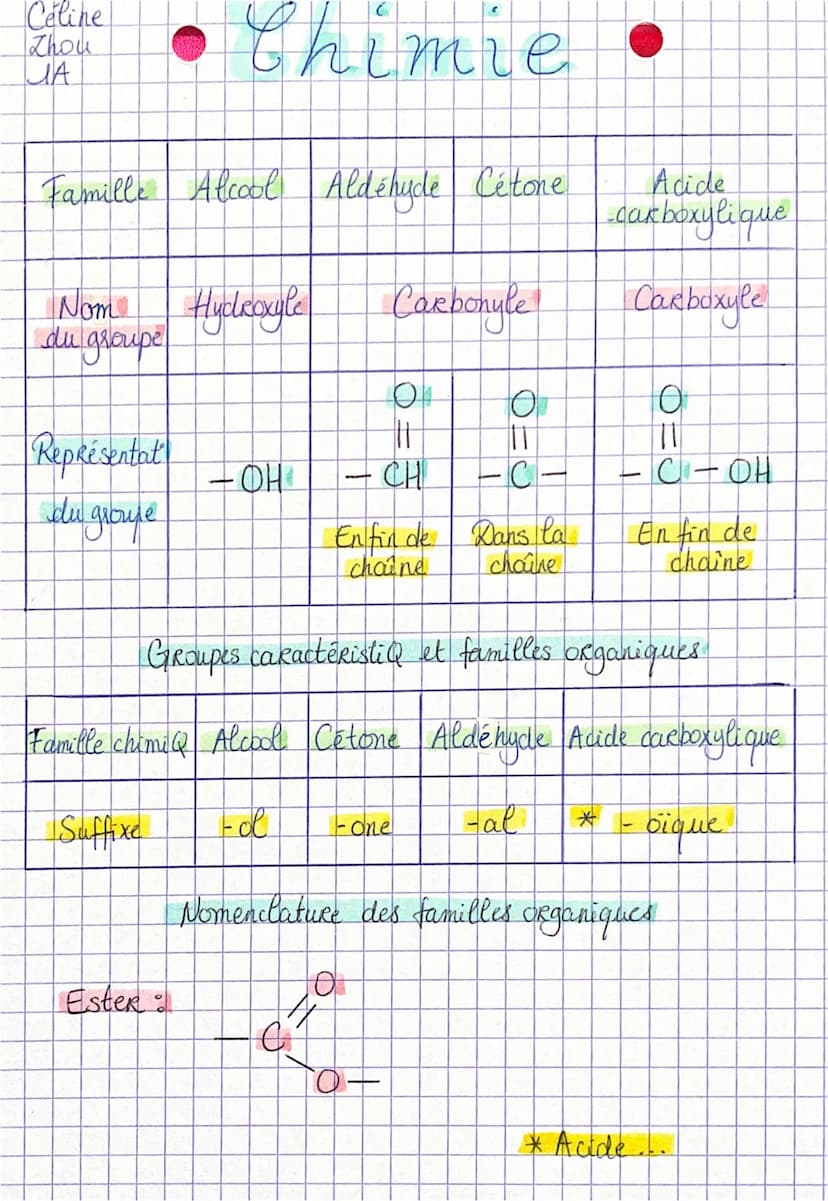 Céline
Zhou
1A
Chimie
Famille Alcool Aldéhyde Cétone Acide carboxylique
Nom du groupe Hydroxyle Carbonyle Carboxyle
Représentat° du groupe
O O O
|| || ||
— OH — CH — C — — C — OH
En fin de chaîne Dans la chaîne En fin de chaîne
Groupes caractéristiQ et familles organiques
Famille chimiQ Alcool Cétone Aldéhyde Acide carboxylique
Suffixe -ol -one -al * -oïque
Nomenclature des familles organiques
Ester :
O
— C
O —
* Acide ...